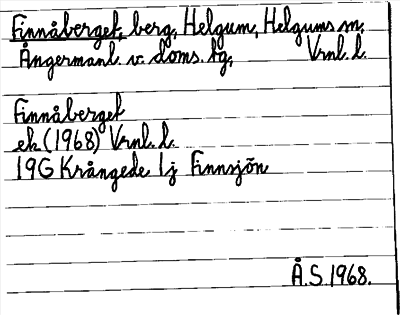 Finnåberget, berg, Helgum, Helgums sn,
Ångermanl. v. doms. tg, Vrnl. l.
Finnåberget
ek (1968) Vrnl. l.
19G Krångede 1j Finnsjön
Å.S. 1968.